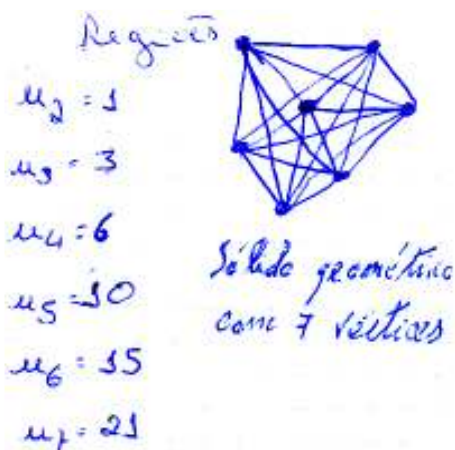 Regiões
u₂ = 1
u₃ = 3
u₄ = 6
u₅ = 10
u₆ = 15
u₇ = 21
Sólido geométrico
com 7 vértices